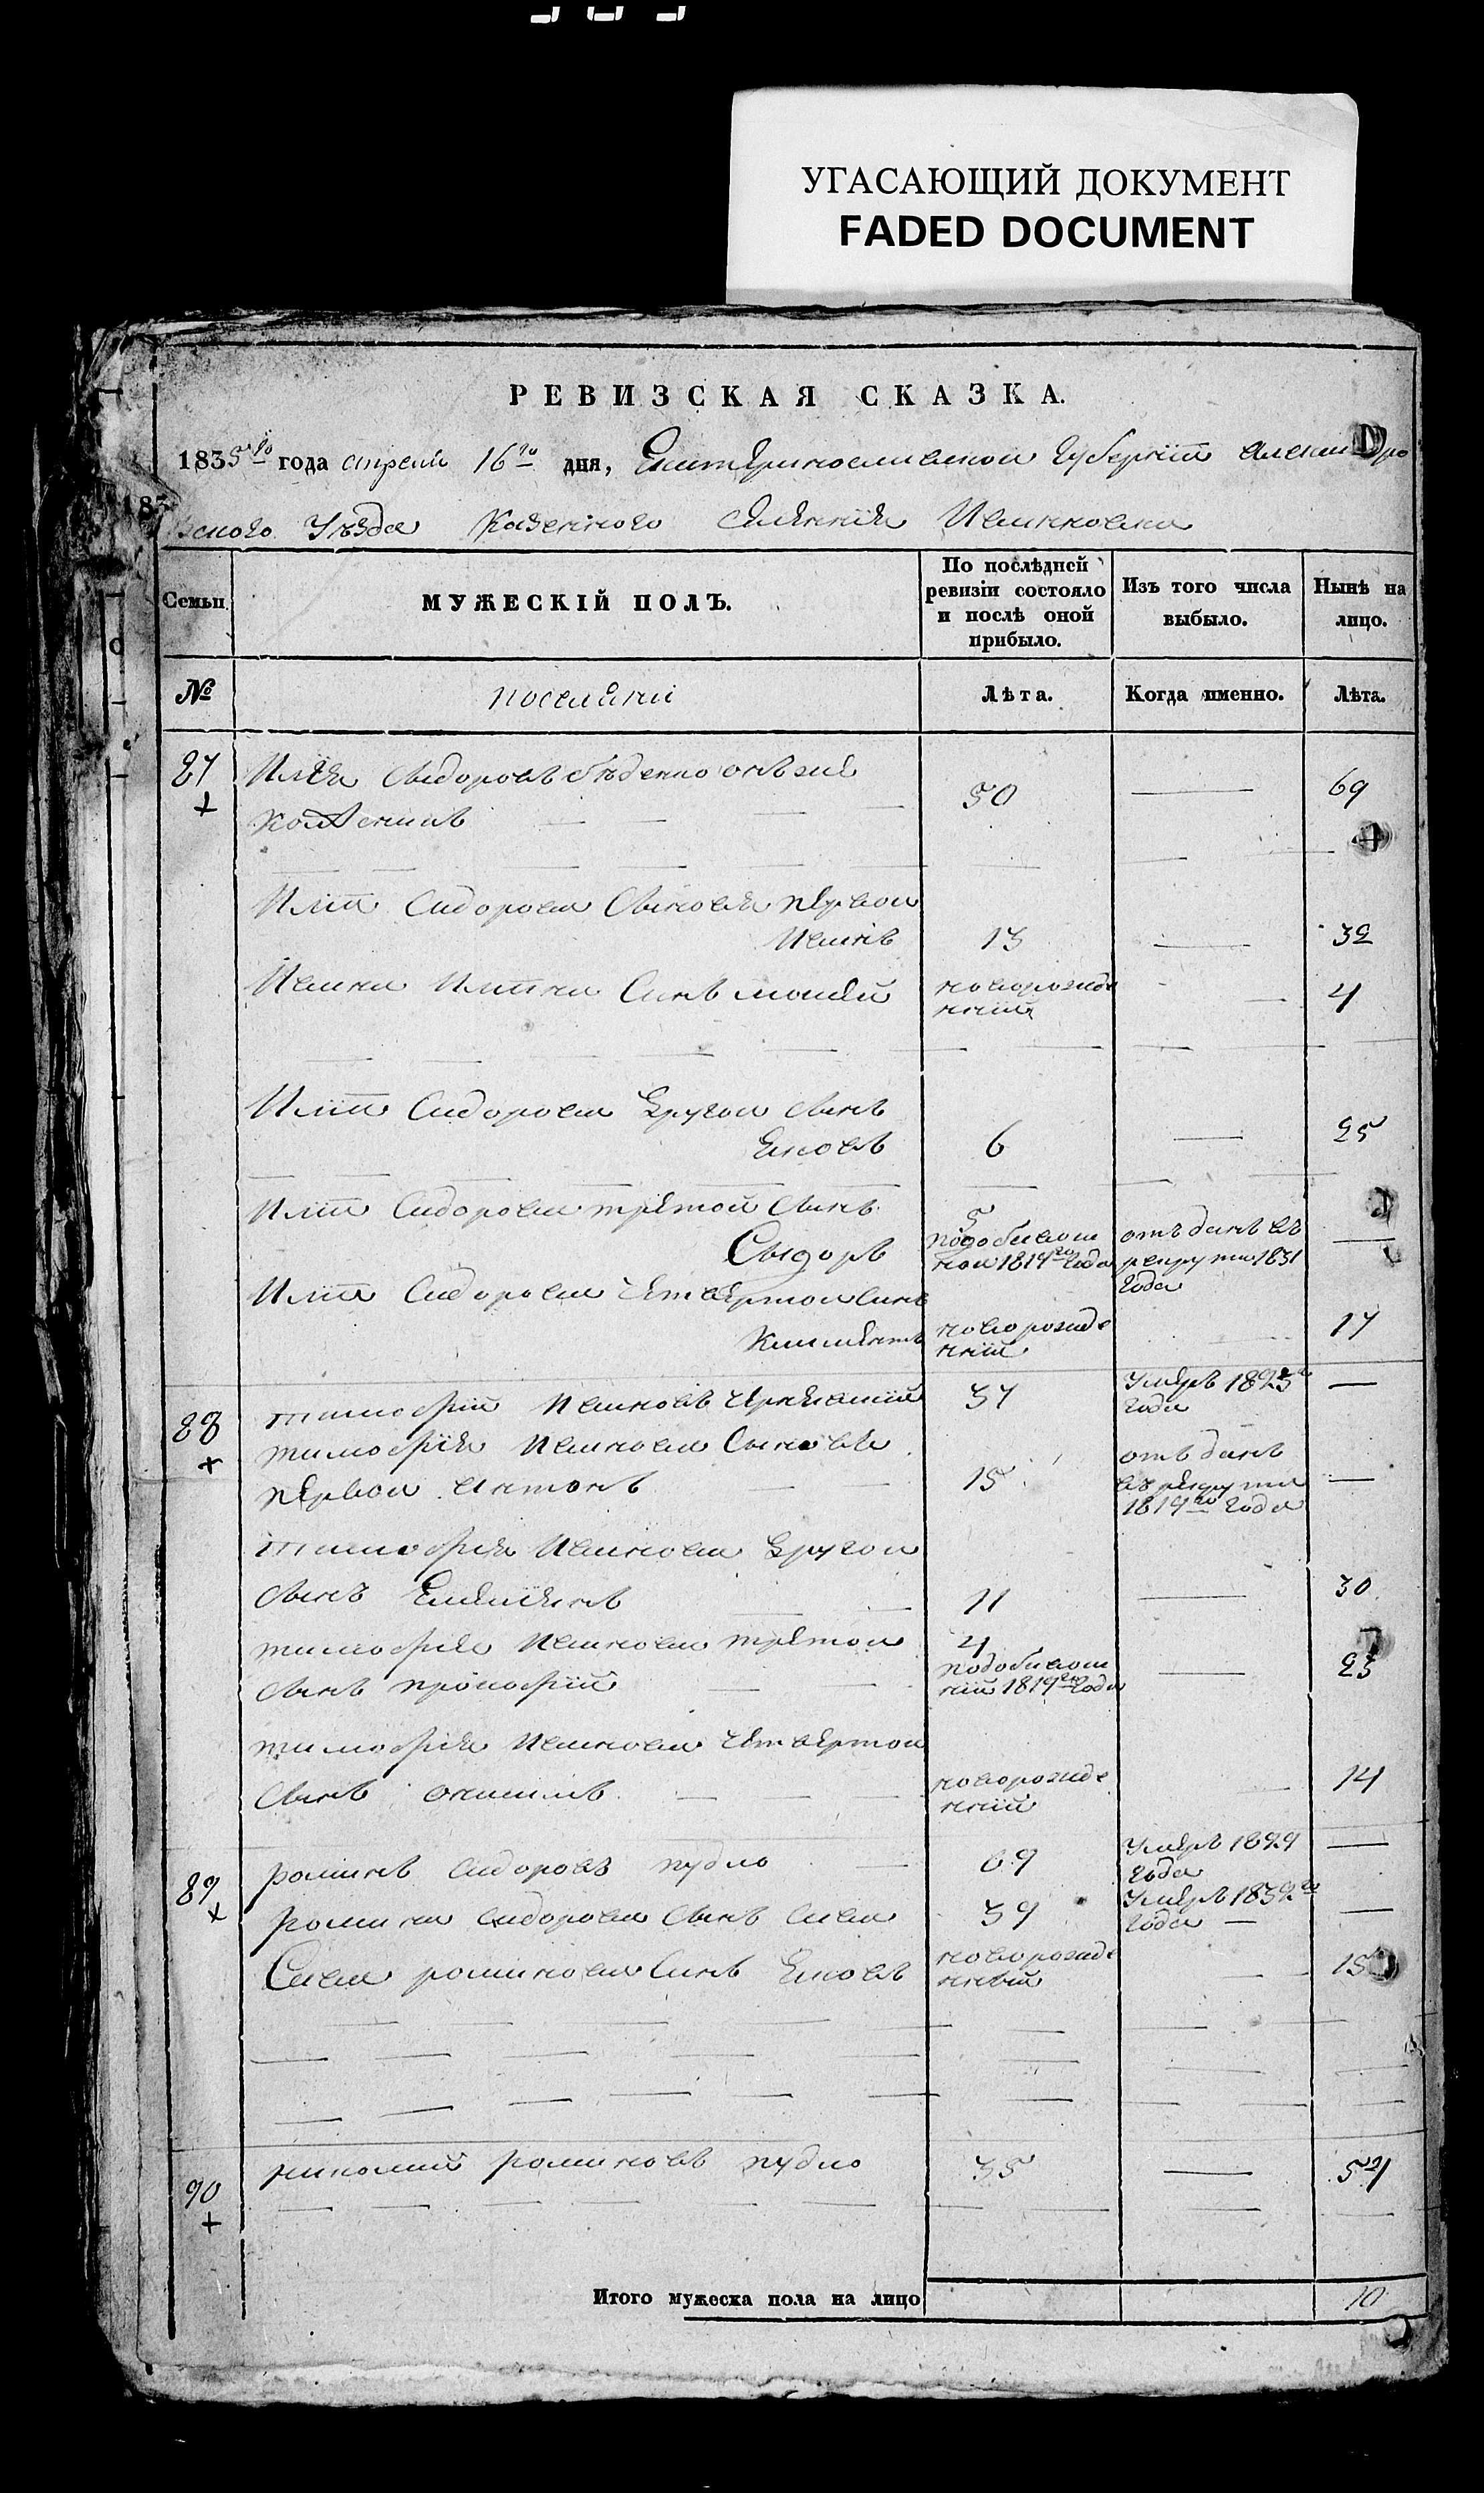 УГАСАЮЩИЙ ДОКУМЕНТ
FADED DOCUMENT
РЕВИЗСКАЯ СКАЗКА.
1835го года апреля 16го дня, Екатеринославской губернїи александро
вского Уѣзда Казенного селѣния Ивановки
Семьи.
МУЖЕСКІЙ ПОЛЪ.
По послѣдней ревизіи состояло и послѣ оной прибыло.
Изъ того числа выбыло.
Нынѣ на лицо.
№
поселяни
Лѣта.
Когда именно.
Лѣта.
87 Илїя Сидоровъ 50 — 69
Илїи Сидорова Сыновя первои
Иванъ 13 — 32
Ивана Сынъ новорожде нний 4
Илїи Сидорова другои Сынъ
Яковъ 6 — 25
Илїи Сидорова третои Сынъ 5
Сыдоръ 1814го года отъ данъ въ рекруты 1831 года —
Илїи Сидорова Четвертои Синъ
новорожде ннїй 17
88 тимофїй Ивановъ 37 Умеръ 1823 года —
тимофїя Иванова Сыновя
первои антонъ 15 отъ данъ въ рекруты 1819го года —
тимофїя Иванова другои
Сынъ Емелянъ 11 — 30
тимофїя Иванова третои 4
Сынъ прокофїй 1819го года — 23
тимофїя Иванова Четвертои
Сынъ новорожде ннїй 14
89 романъ Сидоровъ пудло 69 Умеръ 1829 года —
романа Сидорова Сынъ Сава 39 Умеръ 1832го года —
Савы романова Синъ Яковъ новорожде нный 15
90 николай романовъ пудло 35 — 54
Итого мужеска пола на лицо 10